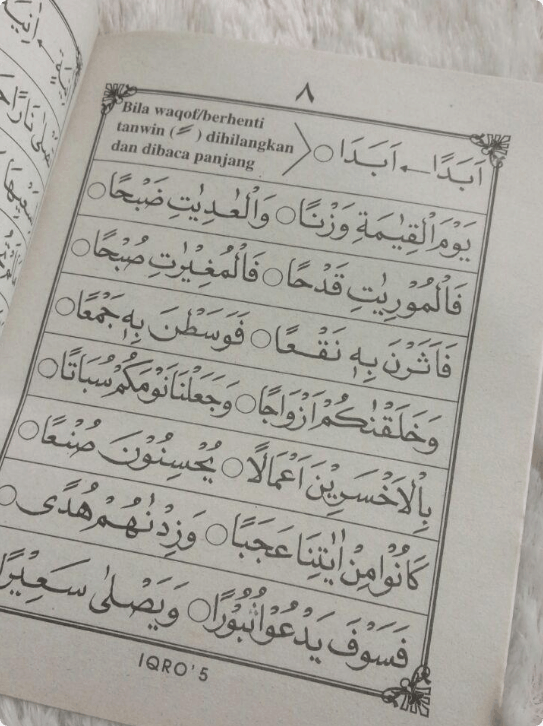 ٨
Bila waqof/berhenti
tanwin ( ــً ) dihilangkan
dan dibaca panjang
اَبَدًا ← اَبَدَا ○
يَوْمَ الْقِيٰمَةِ وَزْنًا ○ وَالْعٰدِيٰتِ ضَبْحًا ○
فَالْمُوْرِيٰتِ قَدْحًا ○ فَالْمُغِيْرٰتِ صُبْحًا ○
فَاَثَرْنَ بِهٖ نَقْعًا ○ فَوَسَطْنَ بِهٖ جَمْعًا ○
وَخَلَقْنٰكُمْ اَزْوَاجًا ○ وَجَعَلْنَا نَوْمَكُمْ سُبَاتًا ○
بِالْاَخْسَرِيْنَ اَعْمَالًا ○ يُحْسِنُوْنَ صُنْعًا ○
كَانُوْا مِنْ اٰيٰتِنَا عَجَبًا ○ وَزِدْنٰهُمْ هُدًى ○
فَسَوْفَ يَدْعُوْا ثُبُوْرًا ○ وَيَصْلٰى سَعِيْرًا
IQRO'5